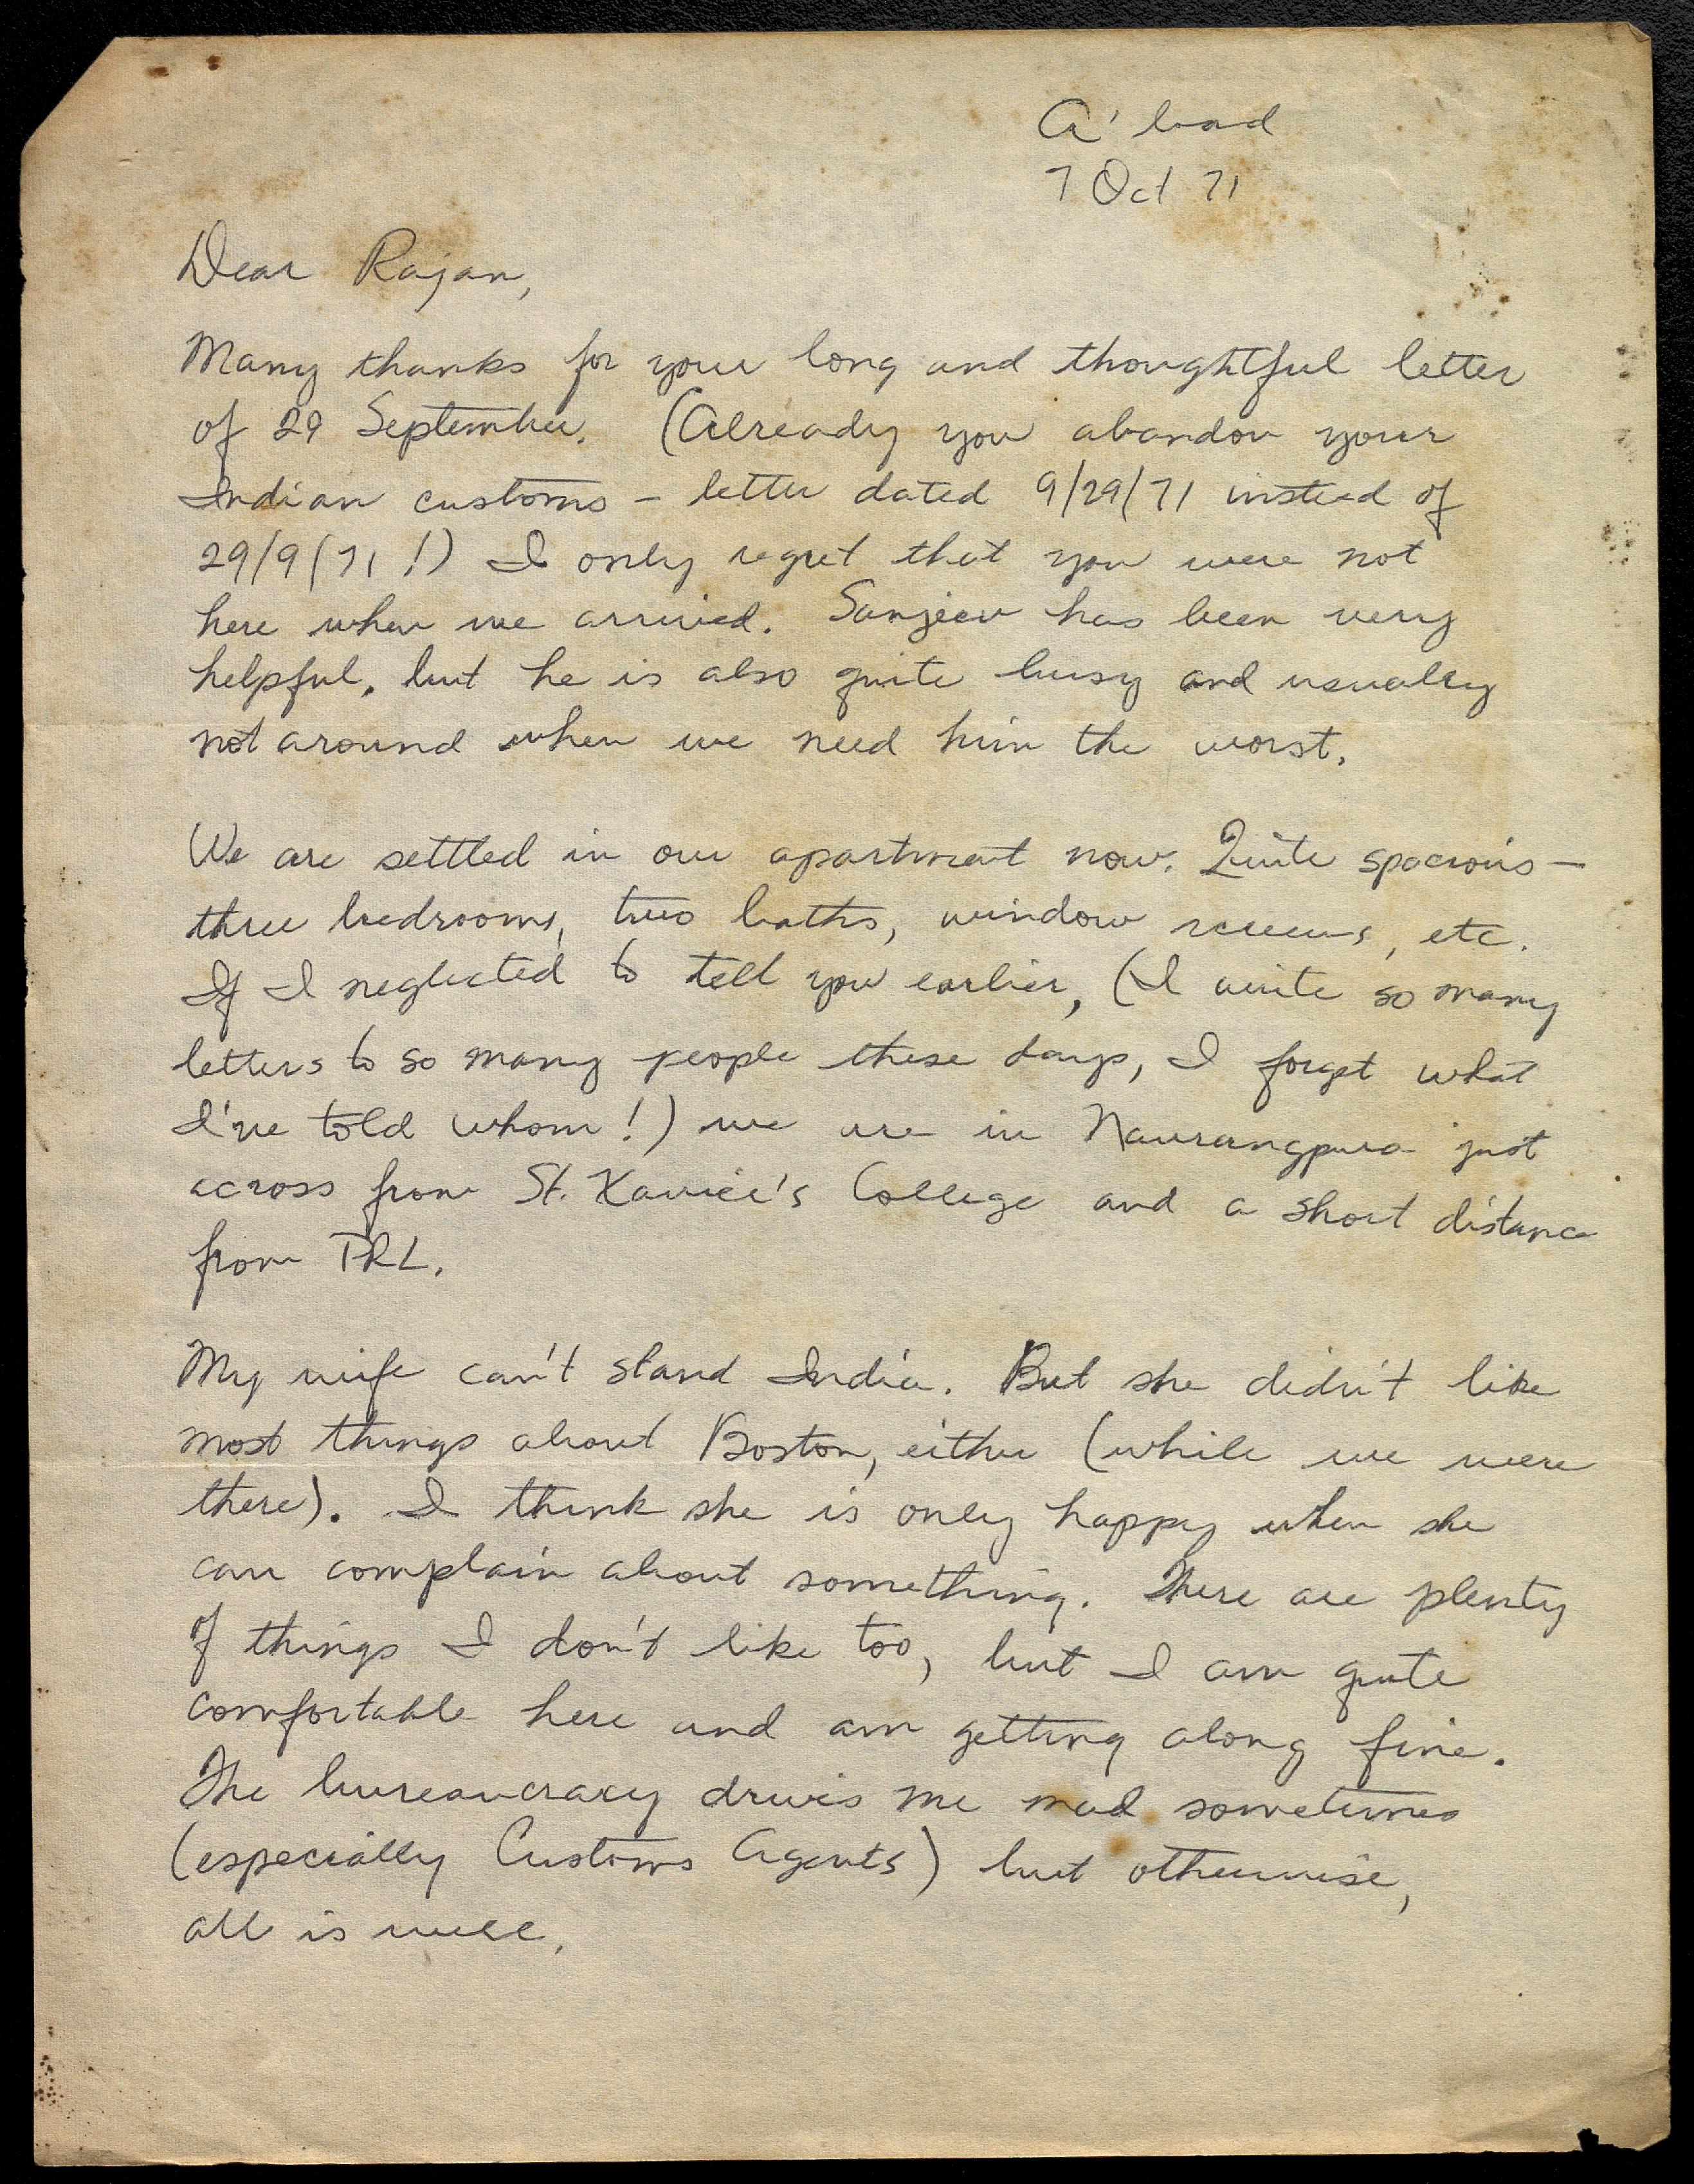 A'bad
7 Oct 71
Dear Rajan,
Many thanks for your long and thoughtful letter
of 29 September. (Already you abandon your
Indian customs – letter dated 9/29/71 instead of
29/9/71!) I only regret that you were not
here when we arrived. Sanjeev has been very
helpful, but he is also quite busy and usually
not around when we need him the worst.
We are settled in our apartment now. Quite spacious –
three bedrooms, two baths, window screens, etc.
If I neglected to tell you earlier, (I write so many
letters to so many people these days, I forget what
I've told whom!) we are in Navrangpura just
across from St. Xavier's College and a short distance
from PRL.
My wife can't stand India. But she didn't like
most things about Boston, either (while we were
there). I think she is only happy when she
can complain about something. There are plenty
of things I don't like too, but I am quite
comfortable here and am getting along fine.
The bureaucracy drives me mad sometimes
(especially Customs Agents) but otherwise,
all is well.